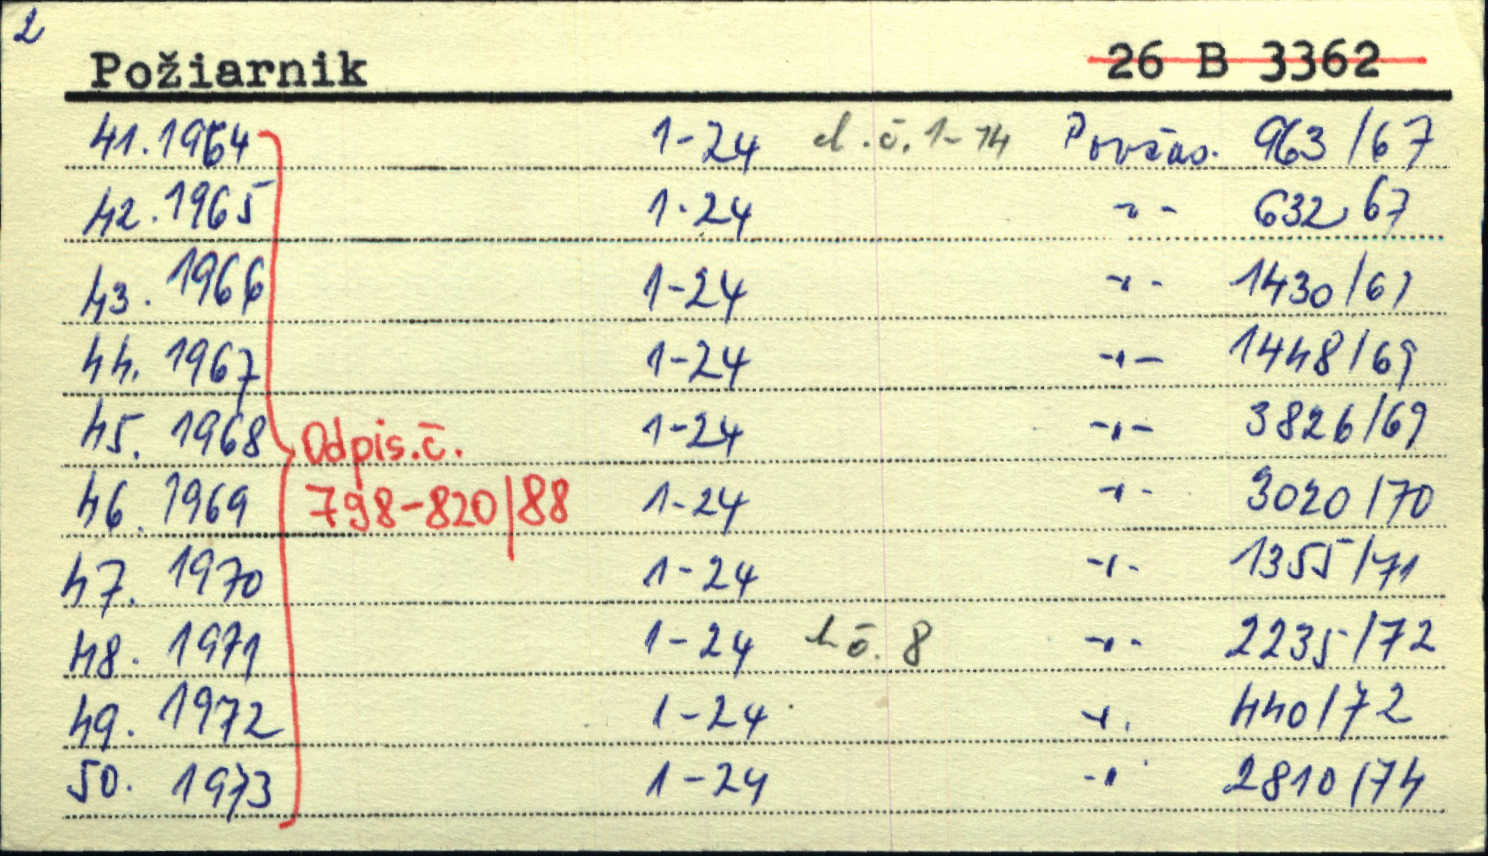 2
Požiarnik 26 B 3362
41. 1964 1-24 č. 1-14 Povčas. 963/67
42. 1965 1-24 -"- 632/67
43. 1966 1-24 -"- 1430/67
44. 1967 1-24 -"- 1448/69
45. 1968 1-24 -"- 3826/69
Odpis. č.
46. 1969 798-820/88 1-24 -"- 3020/70
47. 1970 1-24 -"- 1355/71
48. 1971 1-24 č. 8 -"- 2235/72
49. 1972 1-24 -"- 440/72
50. 1973 1-24 -"- 2810/74